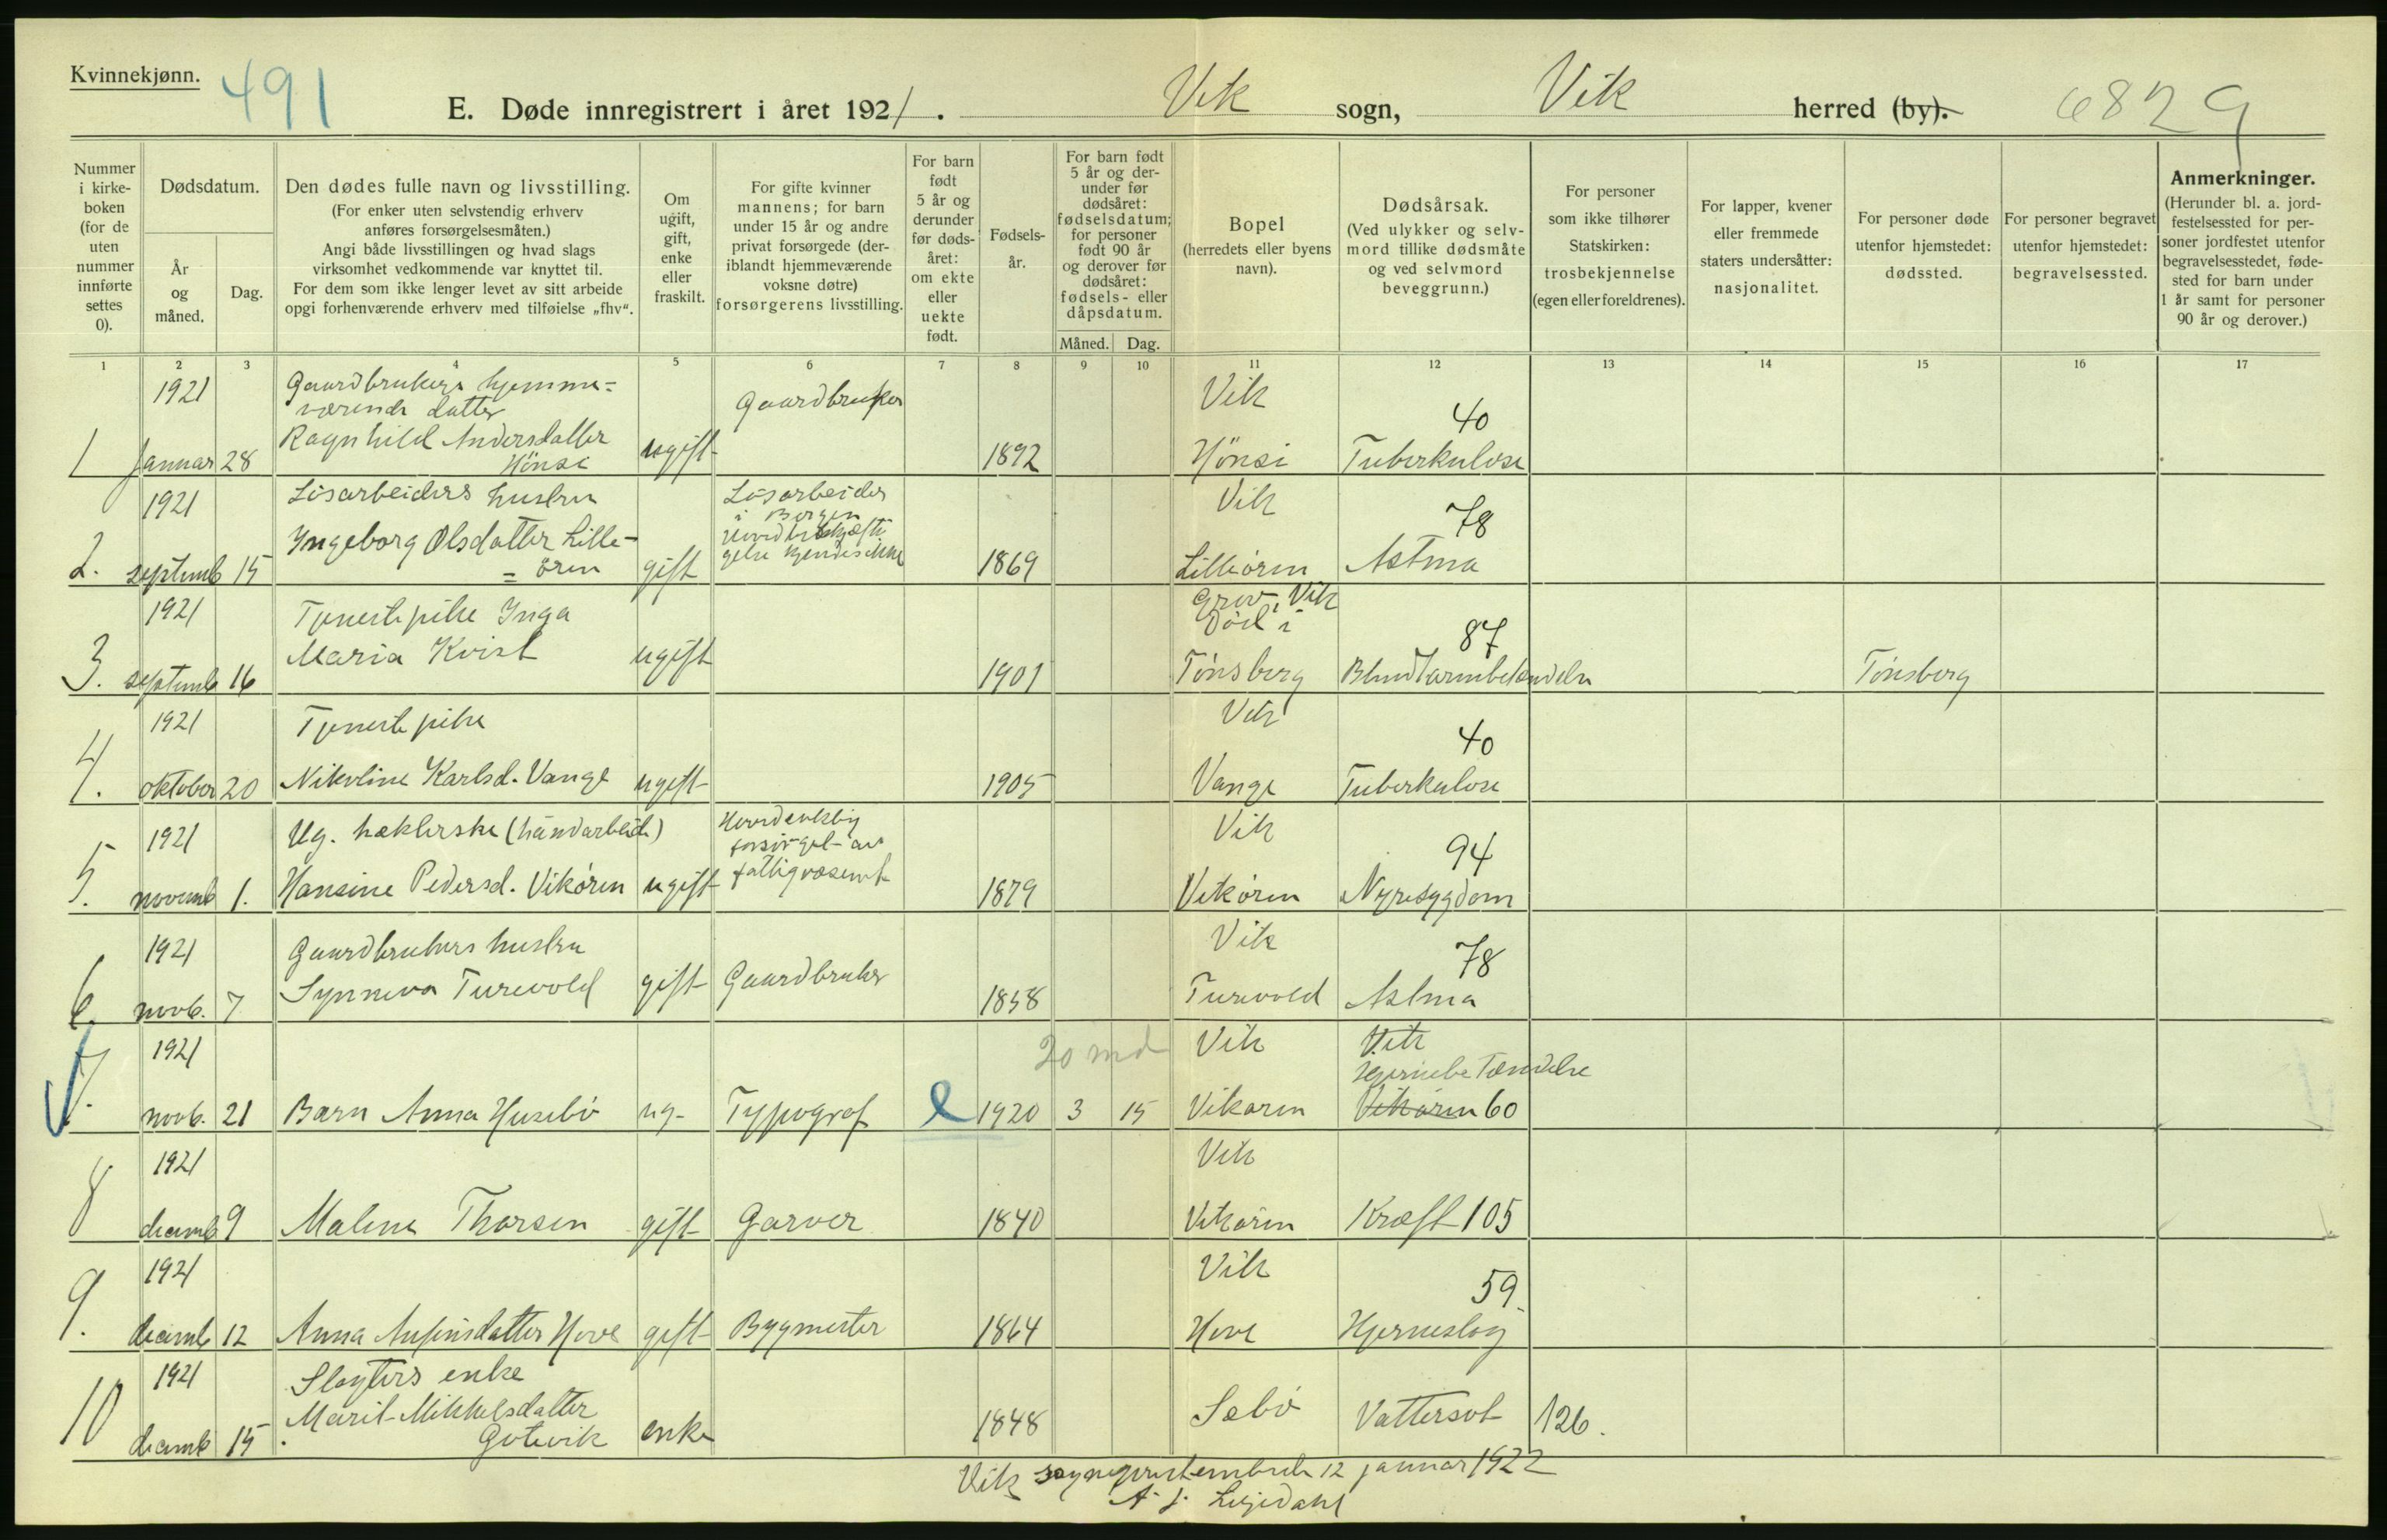 Kvinnekjønn.
491
E. Døde innregistrert i året 1921. Vik sogn, Vik herred (by).
6829
Nummer i kirke-boken (for de uten nummer innførte settes 0).
Dødsdatum.
År og måned.
Dag.
Den dødes fulle navn og livsstilling.
(For enker uten selvstendig erhverv anføres forsørgelsesmåten.)
Angi både livsstillingen og hvad slags virksomhet vedkommende var knyttet til.
For dem som ikke lenger levet av sitt arbeide opgi forhenværende erhverv med tilføielse „fhv“.
Om ugift, gift, enke eller fraskilt.
For gifte kvinner mannens; for barn under 15 år og andre privat forsørgede (deriblandt hjemmeværende voksne døtre) forsørgerens livsstilling.
For barn født 5 år og derunder før dødsåret: om ekte eller uekte født.
Fødsels-år.
For barn født 5 år og derunder før dødsåret: fødselsdatum; for personer født 90 år og derover før dødsåret: fødsels- eller dåpsdatum.
Måned.
Dag.
Bopel
(herredets eller byens navn).
Dødsårsak.
(Ved ulykker og selvmord tillike dødsmåte og ved selvmord beveggrunn.)
For personer som ikke tilhører Statskirken: trosbekjennelse (egen eller foreldrenes).
For lapper, kvener eller fremmede staters undersåtter: nasjonalitet.
For personer døde utenfor hjemstedet: dødssted.
For personer begravet utenfor hjemstedet: begravelsessted.
Anmerkninger.
(Herunder bl. a. jordfestelsessted for personer jordfestet utenfor begravelsesstedet, fødested for barn under 1 år samt for personer 90 år og derover.)
1 2 3 4 5 6 7 8 9 10 11 12 13 14 15 16 17
1921 Gaardbrukers hjemme=
værende datter Gaardbruker Vik 40
1 Januar 28 Ragnhild Andersdatter
Hönsi ugift 1892 Hönsi Tuberkulose
1921 Lösarbeiders hustru Lösarbeider
i Bergen Vik 78
2. septemb 15 Ingeborg Olsdatter Lille-
= ören gift gelse kjendes ikke 1869 Lilleören Astma
1921 Tjenestepike Inga Vik
Död i 87
3. septemb 16 Maria Kvist ugift 1901 Tönsberg Blindtarmbetændelse Tönsberg
1921 Tjenestepike Vik 40
4. oktober 20 Nikoline Karlsd. Vange ugift 1905 Vange Tuberkulose
1921 Ug. hæklerske (håndarbeide) Hovedsaklig
forsörget av
fattigvæsenet Vik 94
5. novemb 1. Hansine Pedersd. Vikören ugift 1879 Vikören Nyresygdom
1921 Gaardbrukers hustru Vik 78
6. novb. 7 Synneva Turevold gift Gaardbruker 1858 Turevold Astma
1921 20 md Vik Vik
Hjernebetændelse
7. novb. 21 Barn Anna Husebö ug. Typograf e 1920 3 15 Vikören Vikören 60
1921 Vik
8 decemb 9 Malena Thorsen gift Garver 1840 Vikören Kræft 105
1921 Vik 59.
9. decemb 12 Anna Anfinsdatter Hove gift Bygmester 1864 Hove Hjerneslag
1921 Slagters enke
10 decemb 15. Marit Mikkelsdatter
Gotevik enke 1848 Sæbö Vattersot 126.
Vik sogneprestembede 12 januar 1922
A. J. Liljedahl